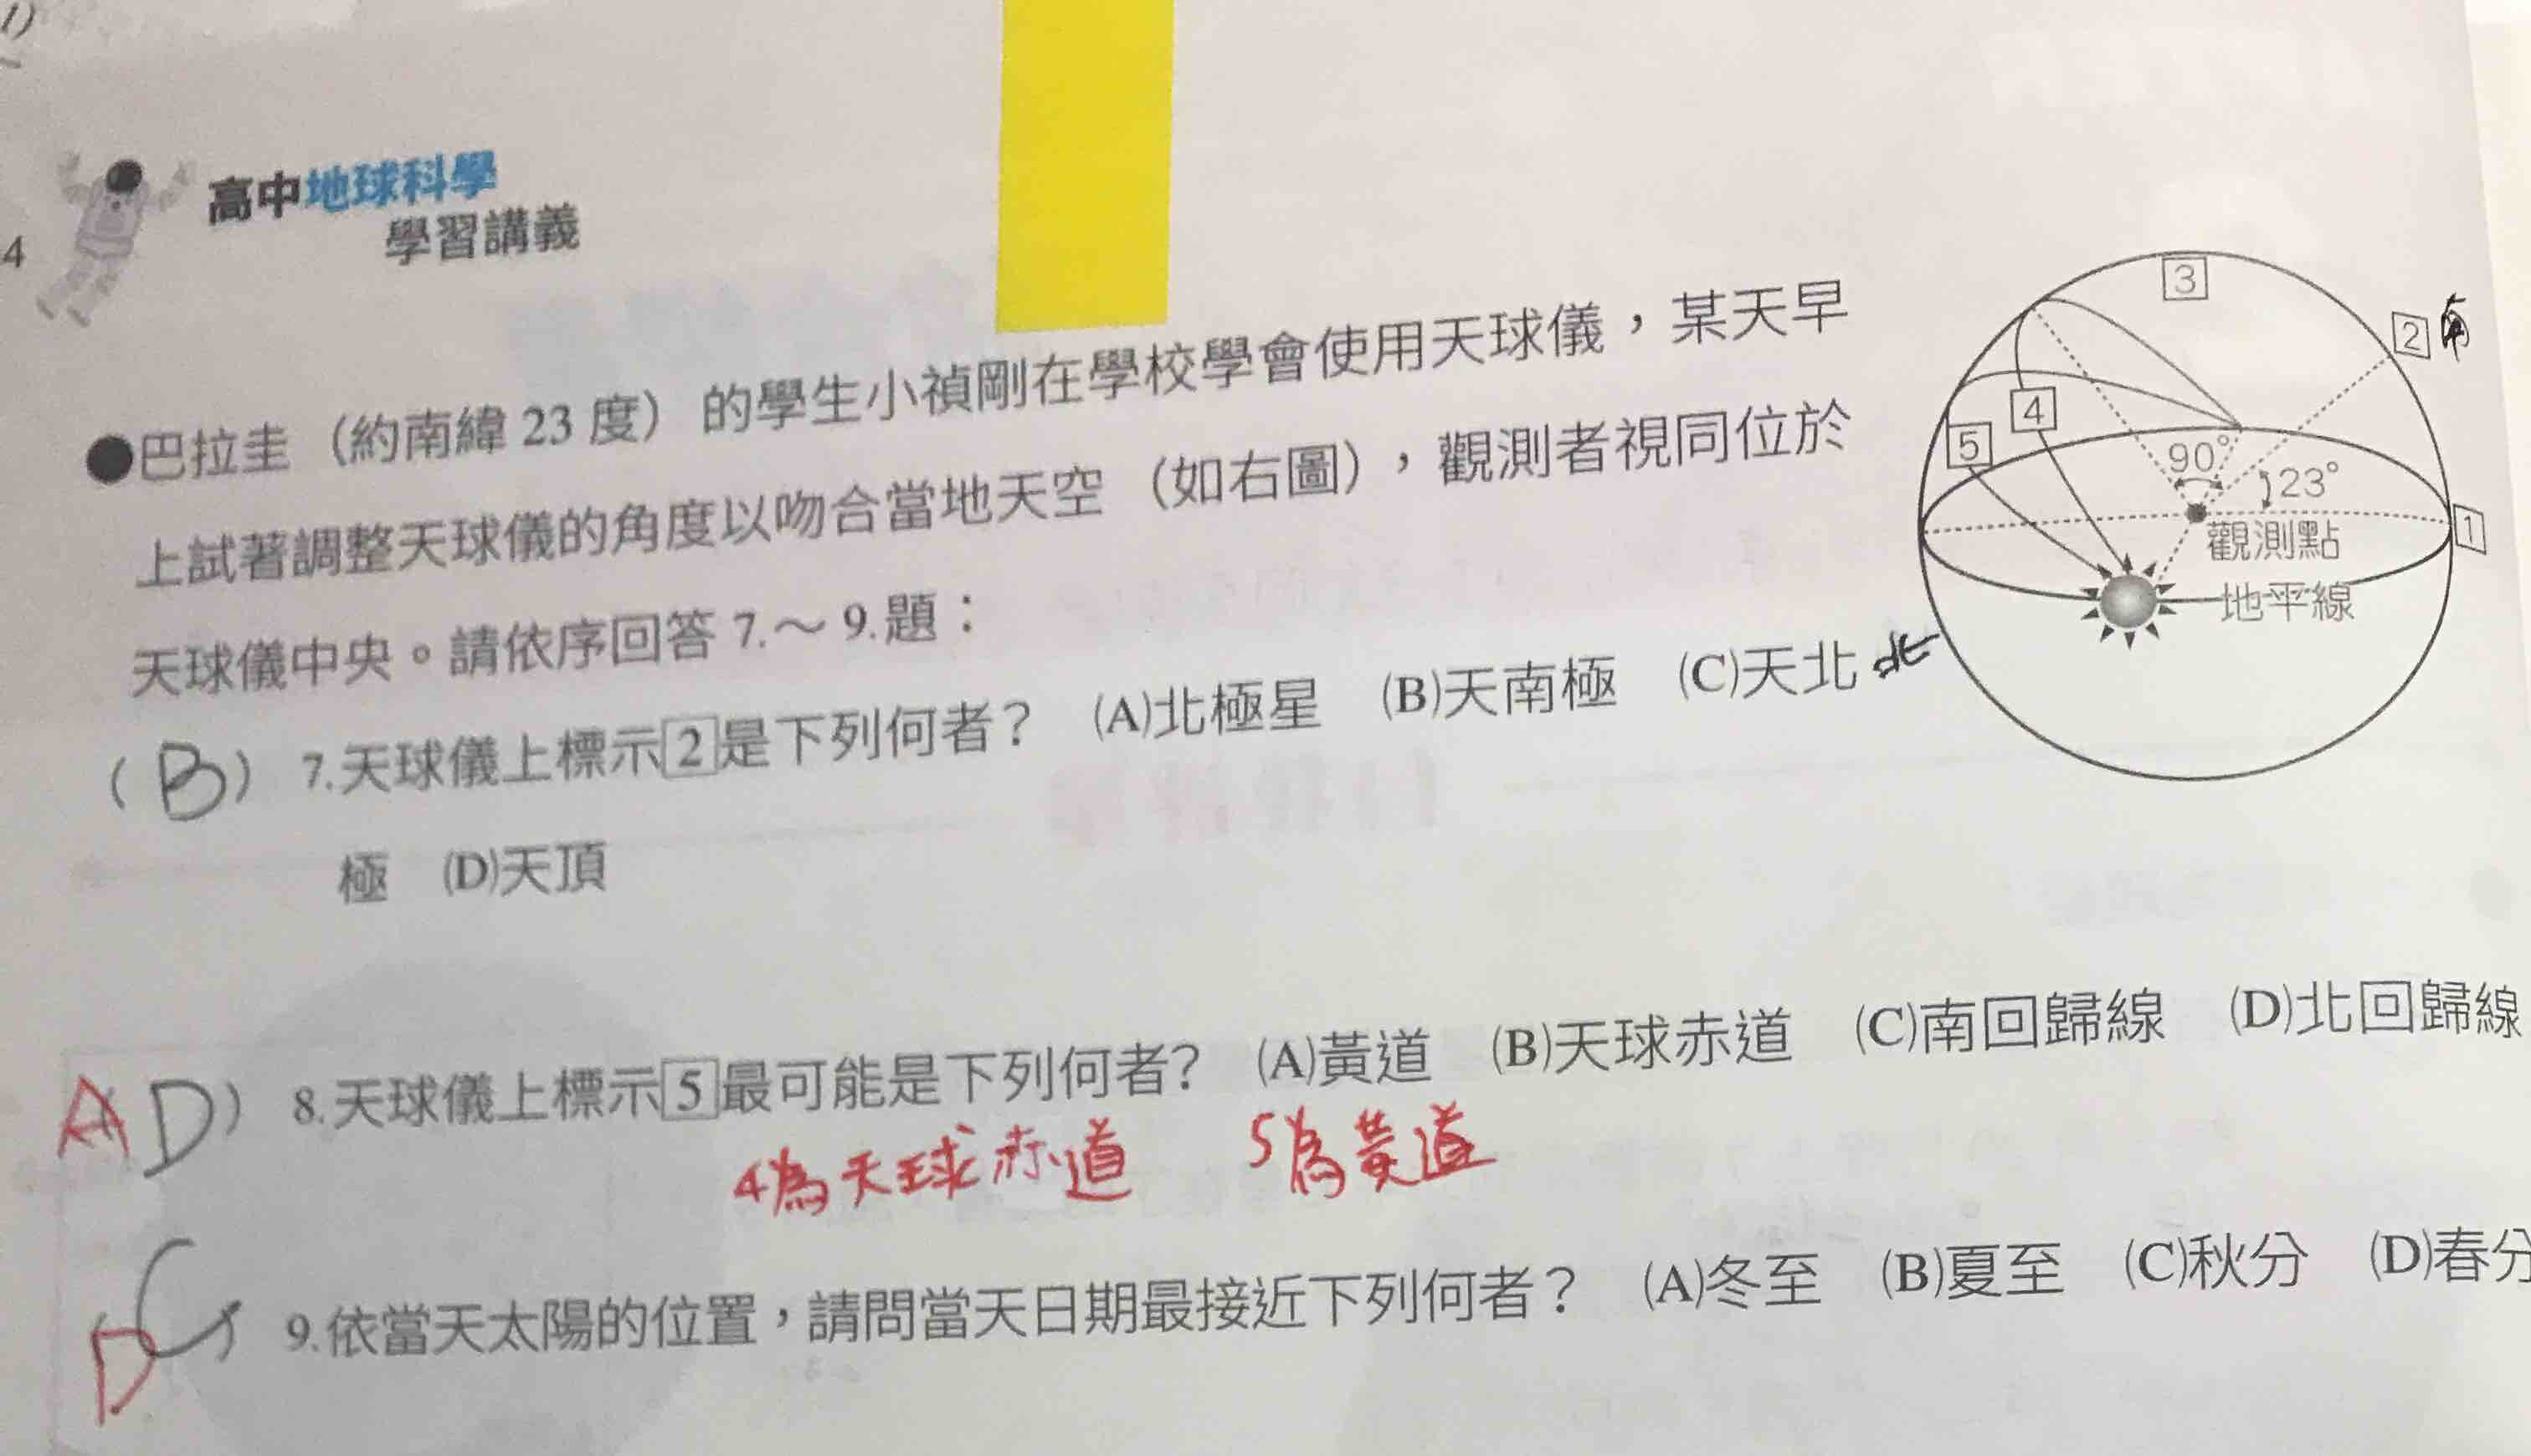 4
高中地球科學
學習講義
●巴拉圭（約南緯 23 度）的學生小禎剛在學校學會使用天球儀，某天早
上試著調整天球儀的角度以吻合當地天空（如右圖），觀測者視同位於
天球儀中央。請依序回答 7.～ 9.題：
3
2 南
4
5
90°
23°
1
觀測點
地平線
北
（B） 7.天球儀上標示2是下列何者？ (A)北極星 (B)天南極 (C)天北
極 (D)天頂
A D） 8.天球儀上標示5最可能是下列何者? (A)黃道 (B)天球赤道 (C)南回歸線 (D)北回歸線
4為天球赤道 5為黃道
D C 9.依當天太陽的位置，請問當天日期最接近下列何者？ (A)冬至 (B)夏至 (C)秋分 (D)春分